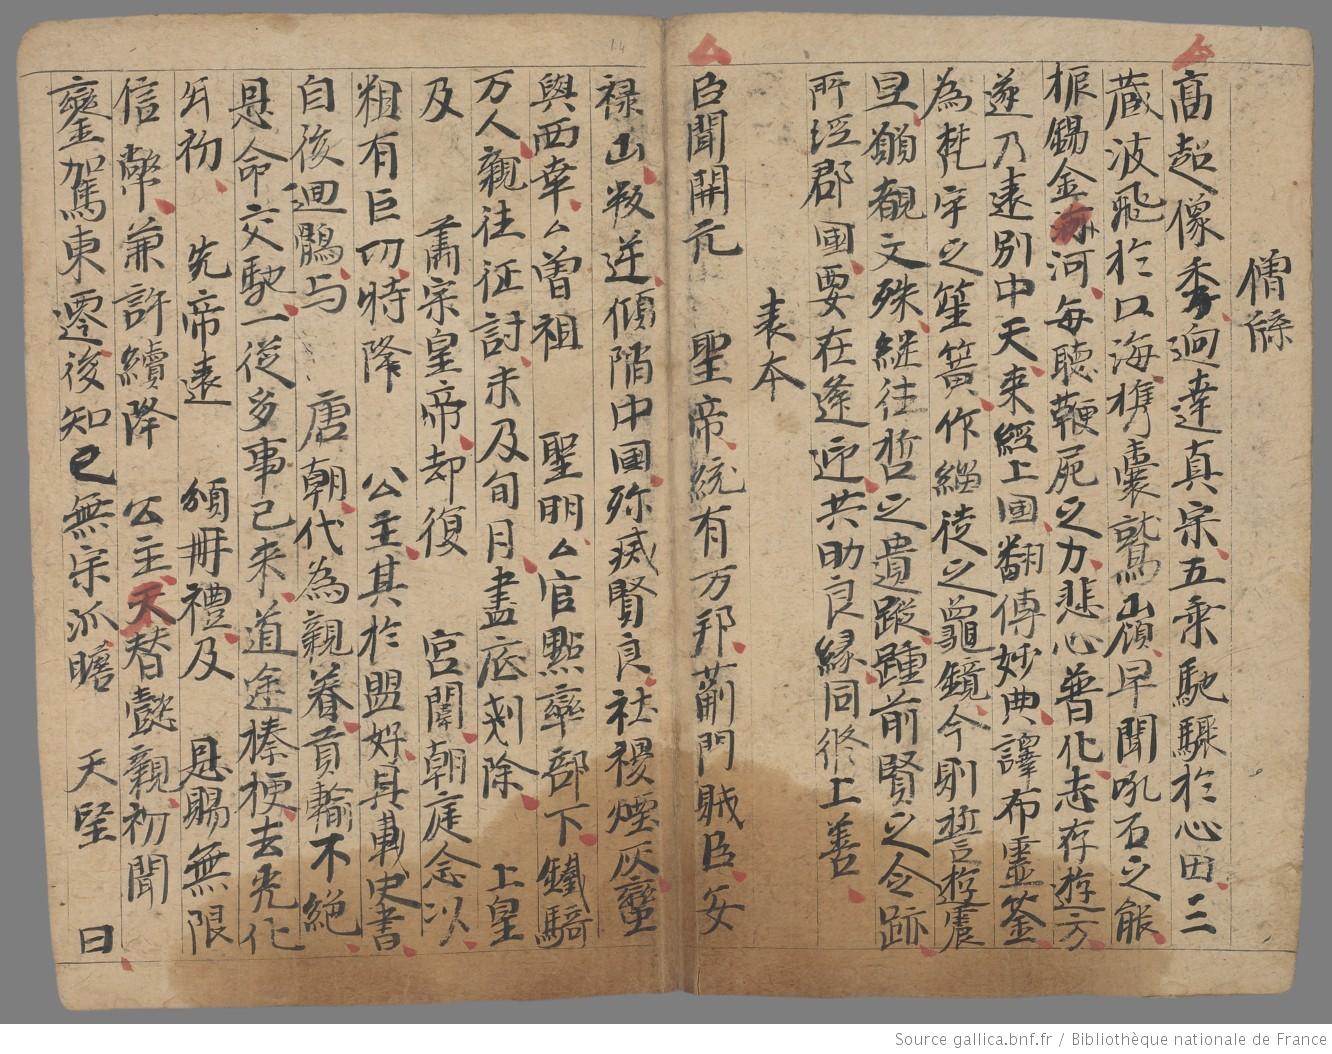 僧牒
高超像季迥達真宗五乘馳驟於心田三
蔵波飛於口海携囊鷲嶺早聞吼石之能
振錫金海河每聽鞭屍之力悲心普化志存遊方
遂乃遠別中天來經上國翻傳妙典譯布靈荃
為梵宇之笙簧作緇徒之龜鏡今則誓遊震
旦願覩文殊継往哲之遺蹤踵前賢之令跡
所逕郡國要在逢迎共助良縁同修上善
表本
臣聞開元 聖帝統有万邦薊門賊臣安
禄山叛逆傾陷中國殄滅賢良社稷煙灰鑾
輿西幸厶曽祖 聖明厶官點率部下鐵騎
万人親往征討未及旬月盡底剗除 上皇
及 肅宗皇帝却復 宮闈朝庭念以
粗有巨功特降 公主其於盟好具載史書
自後迴鶻与 唐朝代為親眷貢輸不絶
恩命交馳一從多事已来道途榛梗去光化
年初 先帝遠 頒冊禮及 恩賜無限
信幣兼許續降 公主天替懿親初聞
鑾駕東遷後知已無宗派瞻 天望 日
14
Source gallica.bnf.fr / Bibliothèque nationale de France